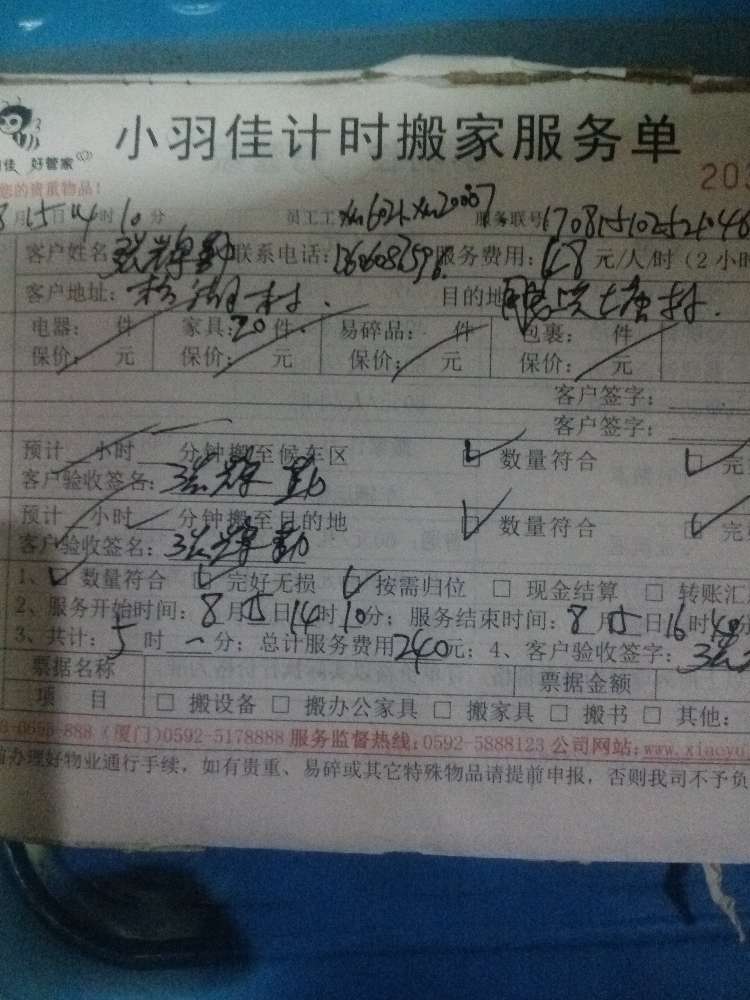 小羽佳计时搬家服务单
佳 好管家
您的贵重物品！
202
8月15日14时10分 员工工 服务联号
客户姓名 张辉勤 联系电话： 服务费用：48元/人/时（2小时
客户地址： 村. 目的地 村.
电器： 件 家具：20件. 易碎品： 件 包裹： 件
保价： 元 保价： 元 保价： 元 保价： 元
客户签字：
客户签字：
预计 小时 分钟搬至候车区 ☑ 数量符合 ☑ 完
客户验收签名：张辉勤
预计 小时 分钟搬至目的地 ☑ 数量符合 ☑ 完
客户验收签名：张辉勤
1、☑ 数量符合 ☑ 完好无损 ☑ 按需归位 □ 现金结算 □ 转账汇
2、服务开始时间：8月15日14时10分；服务结束时间：8月15日16时40分
3、共计：5时一分；总计服务费用240元；4、客户验收签字：张
票据名称 票据金额
项 目 □ 搬设备 □ 搬办公家具 □ 搬家具 □ 搬书 □ 其他：
-6695-888（厦门）0592-5178888 服务监督热线：0592-5888123 公司网站：www.xiaoyu
前办理好物业通行手续，如有贵重、易碎或其它特殊物品请提前申报，否则我司不予负